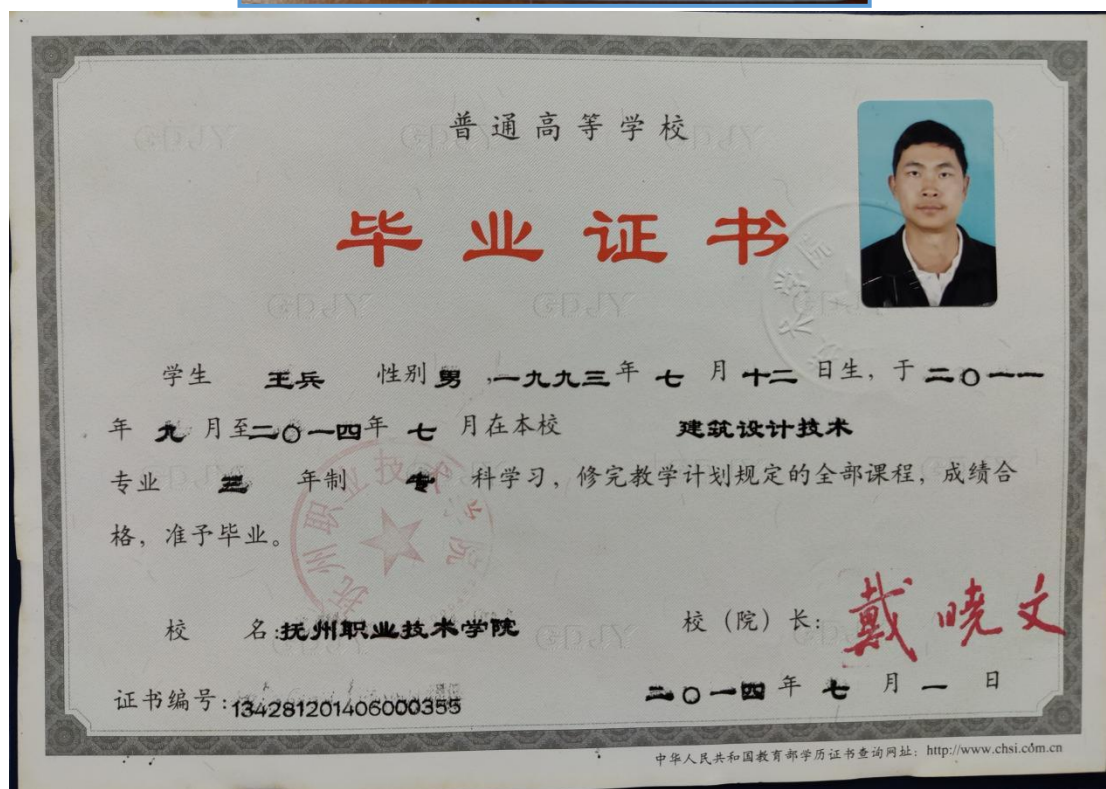 普通高等学校
毕业证书
学生 王兵 性别 男 ,一九九三年 七 月 十二 日生，于 二〇一一
年 九 月至二〇一四年 七 月在本校 建筑设计技术
专业 三 年制 专 科学习，修完教学计划规定的全部课程，成绩合
格，准予毕业。
抚州职业技术学院
校 名:抚州职业技术学院
校（院）长: 戴晓文
证书编号:134281201406000355
二〇一四 年 七 月 一 日
中华人民共和国教育部学历证书查询网址: http://www.chsi.com.cn